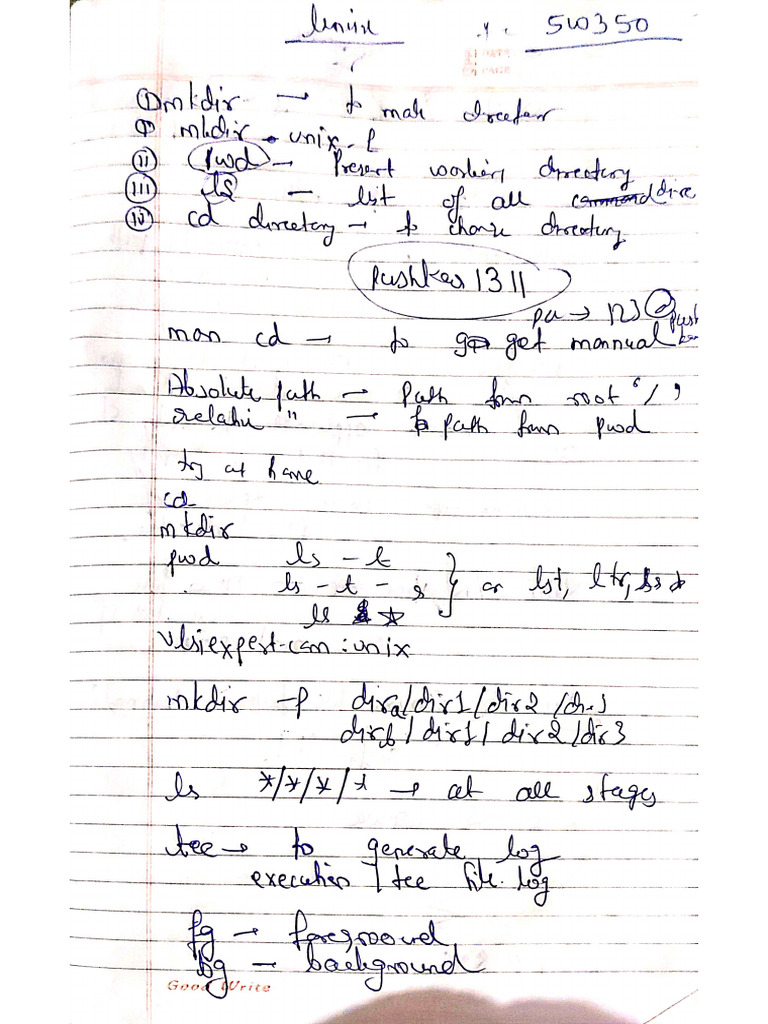 Unix
5W350
DATE
PAGE
① mkdir → to make directory
① mkdir - unix - P
ⅱ pwd - Present working directory
ⅲ ls - list of all dire
ⅳ cd directory → to change directory
pushkar 1311
man cd → to get mannual
Absolute path → Path from root '/'
relative " → path from pwd
try at home
cd
mkdir
pwd ls - t
ls - t - s } or lst, ltr, ls *
ls *
vlsiexpert-com : unix
mkdir -p dira/dir1/dir2/dir3
dirb/dir1/dir2/dir3
ls */*/*/* → at all stages
tee → to generate log
execution | tee file.log
fg → foreground
bg → background
Good Write